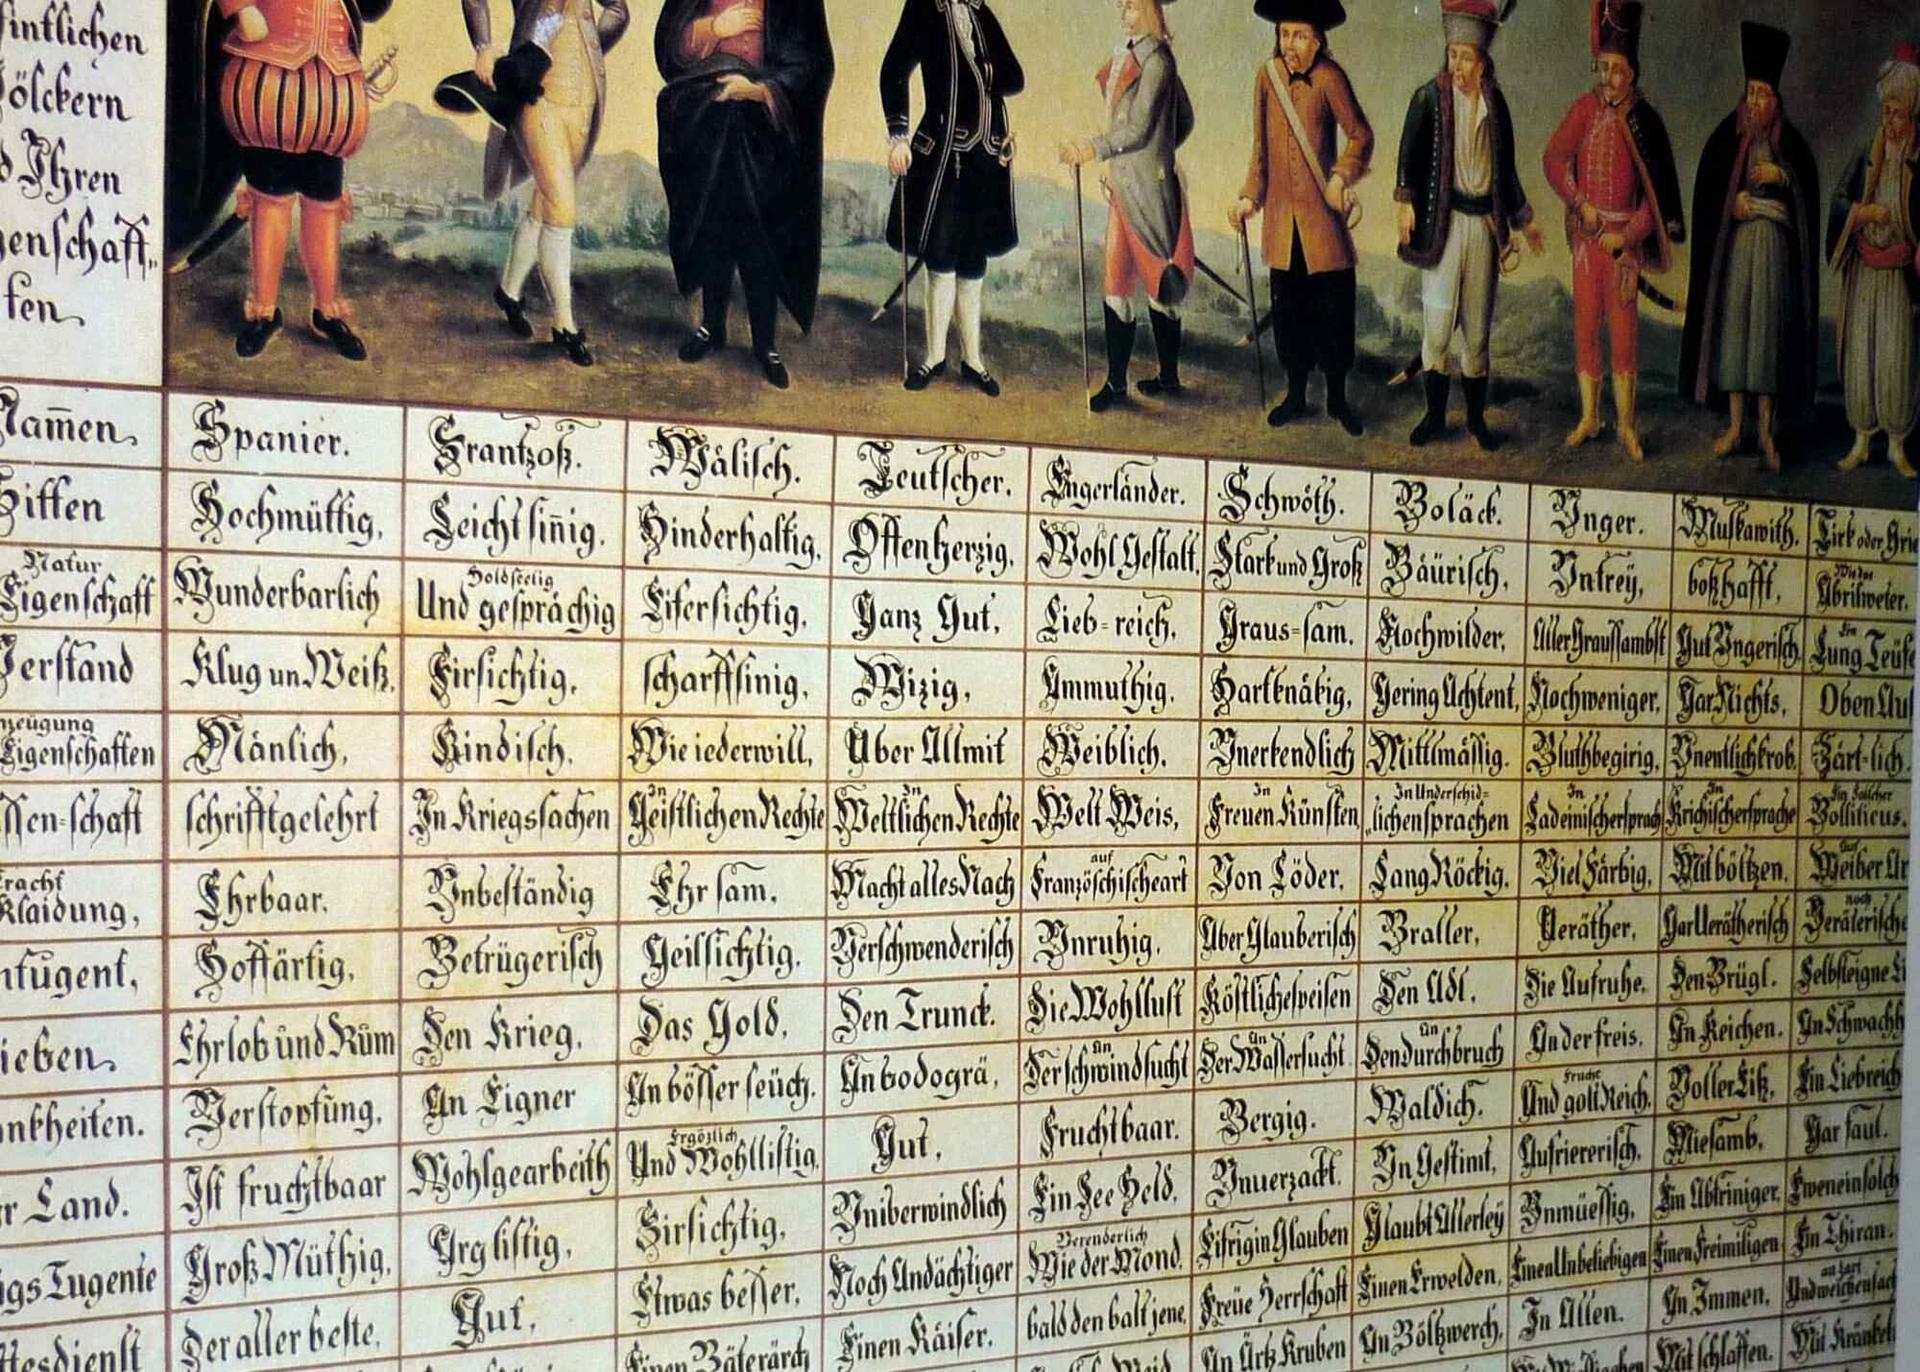 ſintlichen
Völckern
Ihren
genſchafft,,
ten.
Nam̄en. Spanier. Frantzoß. Wäliſch. Teutſcher. Engerländer. Schwöth. Boläck. Vnger. Muskawith. Tirk oder Grie
Sitten Hochmüttig, Leicht ſin̄ig. Hinderhaltig. Offenherzig, Wohl Geſtalt, Stark und Groß Bäuriſch, Vntreÿ, boßhafft, Wie das Abrilweter.
Natur
Eigenſchaft Wunderbarlich Holdſeelig Und geſprächig Eiferſichtig. Ganz Gut, Lieb=reich. Graus=ſam. Nochwilder, Aller Grauſſambſt Gut Vngeriſch. Ein Lung Teüfe
Verſtand Klug un Weiß. Firſichtig, ſcharffſinig. Wizig, Ammuthig. Hartknäkig, Gering Achtent, Nochweniger, Gar Nichts, Oben Au
nzeügung
Eigenſchaften Mänlich, Kindiſch. Wie iederwill, Über Allmit Weiblich. Vnerkendlich Mittlmäſſig. Bluthbegirig, Vnentlichkrob. Zärt=lich.
ſſen=ſchaft ſchrifftgelehrt In Kriegsſachen In Geiſtlichen Rechte In Weltlichen Rechte Welt Weis, In Freuen Künſten, In Underſchid= lichen ſprachen In Ladeiniſcher ſprach In Krichiſcher ſprache Ein falſcher Bolliticus.
Tracht
Klaidung, Ehrbaar. Vnbeſtändig Ehr ſam, Macht alles Nach auf Franzöſchiſche art Von Löder, Lang Röckig. Viel Färbig, Mit böltzen. Auf Weiber Ar
ntugent, Hoffärtig, Betrügeriſch Geilſichtig. Verſchwenderiſch Vnruhig, Aber Glauberiſch Braller, Veräther, Gar Verätheriſch noch Veräteriſche
ieben. Ehrlob ünd Rüm Den Krieg, Das Gold, Den Trunck. Die Wohlluſt Köſtliche ſpeiſen Den Adl, Die Aufruhe, Den Brügl. Selbſteigne Li
ankheiten. Verſtopfüng. An Eigner An böſſer ſeüch. An bodogrä, An Der ſchwindſucht An Der Waſſerſucht An Den durchbruch An der freis. An Keichen. An Schwachh
r Land. Iſt fruchtbaar Wohlgearbeith Ergözlich Und Wohlliſtig. Gut, Fruchtbaar. Bergig. Waldich. Frucht Und golt Reich. Voller Eiß, Ein Liebreich
gs Tugente Groß Müthig, Arg liſtig, Firſichtig, Vniberwindlich Ein See Held. Vnuerzackt. Vn Geſtimt, Aufriereriſch, Mieſamb, Gar faul.
ttesdienſt Der aller beſte, Gut, Etwas beſſer, Noch Andächtiger Verenderlich Wie der Mond. Eifrig in Glauben Glaubt Allerley Vnmüeſſig, Ein Abtriniger, Eweneinſolch
Einen Väterärch Einen Käiſer. bald den balt jene, Freüe Herrſchaft Einen Erwelden, Einen Unbeliebigen Einen Freimiligen Ein Thiran.
An Ärtz Kruben An Böltzwerch, In Allen. An Immen, And weichen ſach
Mit ſchlaffen. Mit Kränkel